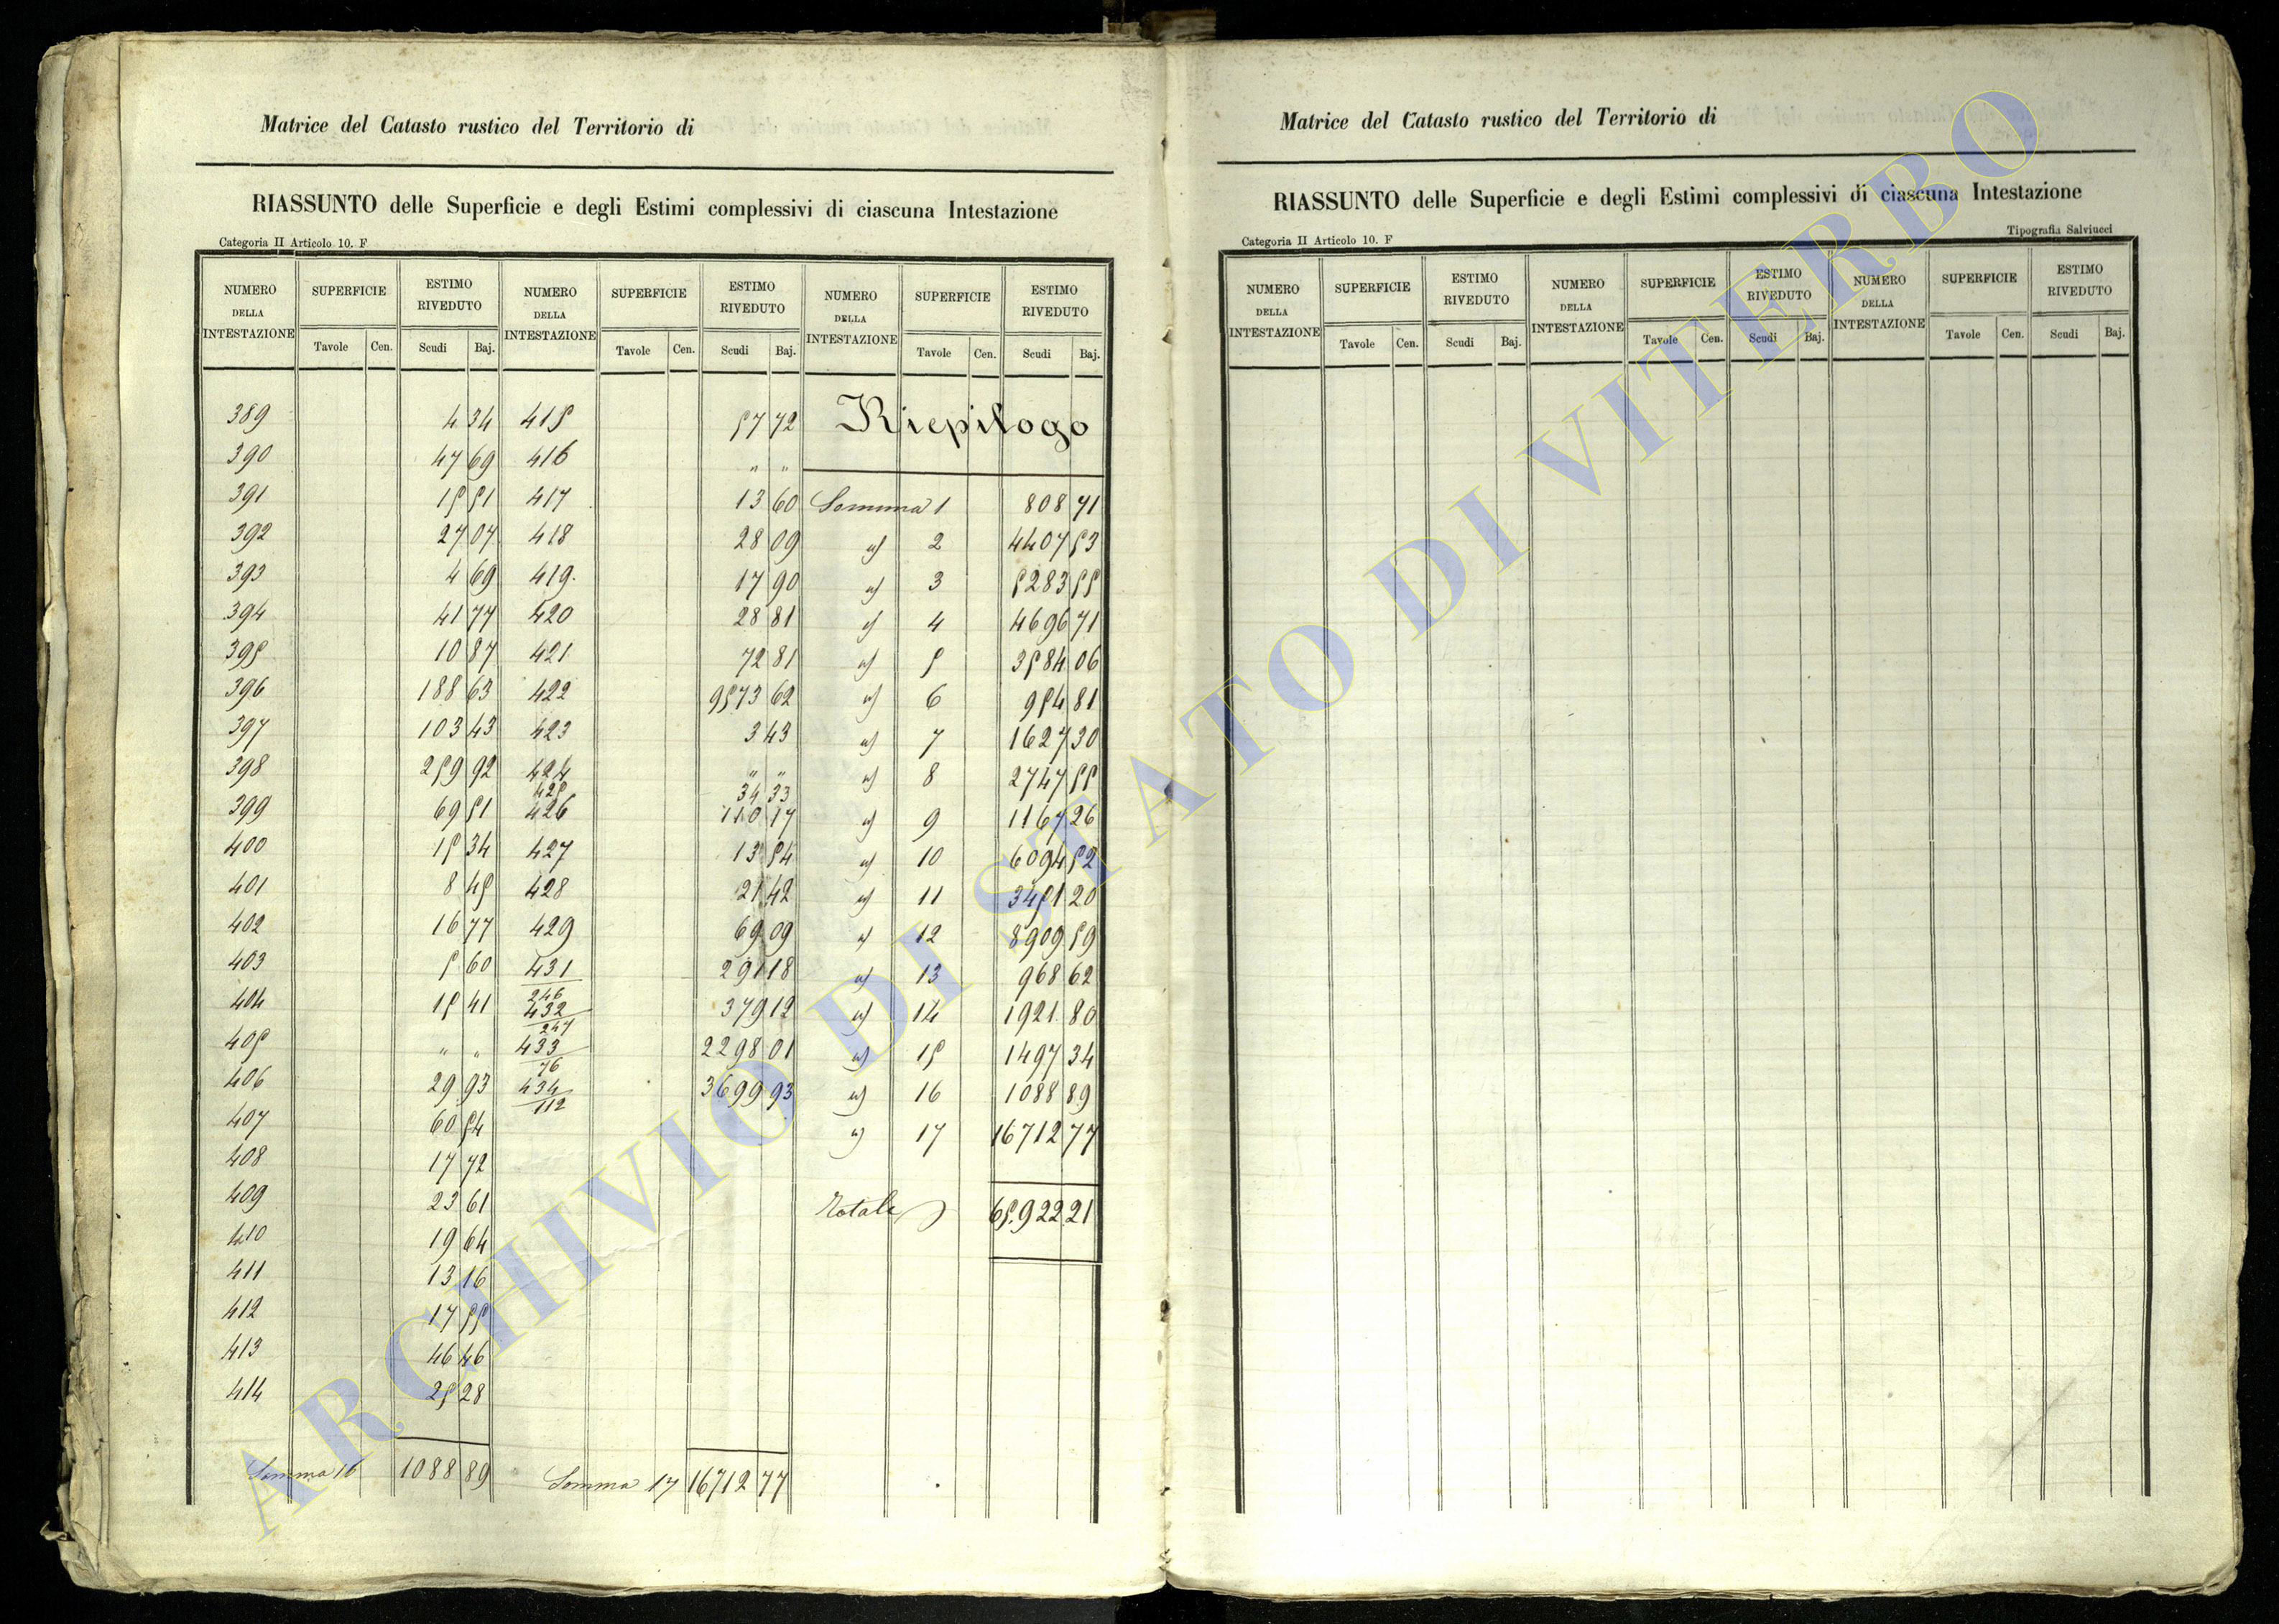 Matrice del Catasto rustico del Territorio di
RIASSUNTO delle Superficie e degli Estimi complessivi di ciascuna Intestazione
Categoria II Articolo 10. F
NUMERO DELLA INTESTAZIONE SUPERFICIE ESTIMO RIVEDUTO NUMERO DELLA INTESTAZIONE SUPERFICIE ESTIMO RIVEDUTO NUMERO DELLA INTESTAZIONE SUPERFICIE ESTIMO RIVEDUTO
Tavole Cen. Scudi Baj. Tavole Cen. Scudi Baj. Tavole Cen. Scudi Baj.
389 4 34
390 47 69
391 15 51
392 27 07
393 4 69
394 41 77
395 10 87
396 188 63
397 103 43
398 259 92
399 69 51
400 15 34
401 8 45
402 16 77
403 5 60
404 15 41
405 " "
406 29 93
407 60 54
408 17 72
409 23 61
410 19 64
411 13 16
412 17 55
413 46 46
414 25 28
Somma 16 1088 89
415 57 72
416 " "
417 13 60
418 28 09
419. 17 90
420 28 81
421 72 81
422 9573 62
423 3 43
424 " "
425 34 33
426 110 17
427 13 54
428 21 42
429 69 09
431/246 291 18
432/247 379 12
433/76 2298 01
434/112 3699 93
Somma 17 16712 77
Riepilogo
Somma 1 808 71
") 2 4407 53
") 3 5283 55
") 4 4696 71
") 5 3584 06
") 6 954 81
") 7 1627 30
") 8 2747 55
") 9 1167 26
") 10 6094 52
") 11 3451 20
") 12 8909 59
") 13 968 62
") 14 1921. 80
") 15 1497 34
") 16 1088 89
") 17 16712 77
Totale 65.922 21
Matrice del Catasto rustico del Territorio di
RIASSUNTO delle Superficie e degli Estimi complessivi di ciascuna Intestazione
Categoria II Articolo 10. F Tipografia Salviucci
NUMERO DELLA INTESTAZIONE SUPERFICIE ESTIMO RIVEDUTO NUMERO DELLA INTESTAZIONE SUPERFICIE ESTIMO RIVEDUTO NUMERO DELLA INTESTAZIONE SUPERFICIE ESTIMO RIVEDUTO
Tavole Cen. Scudi Baj. Tavole Cen. Scudi Baj. Tavole Cen. Scudi Baj.
ARCHIVIO DI STATO DI VITERBO